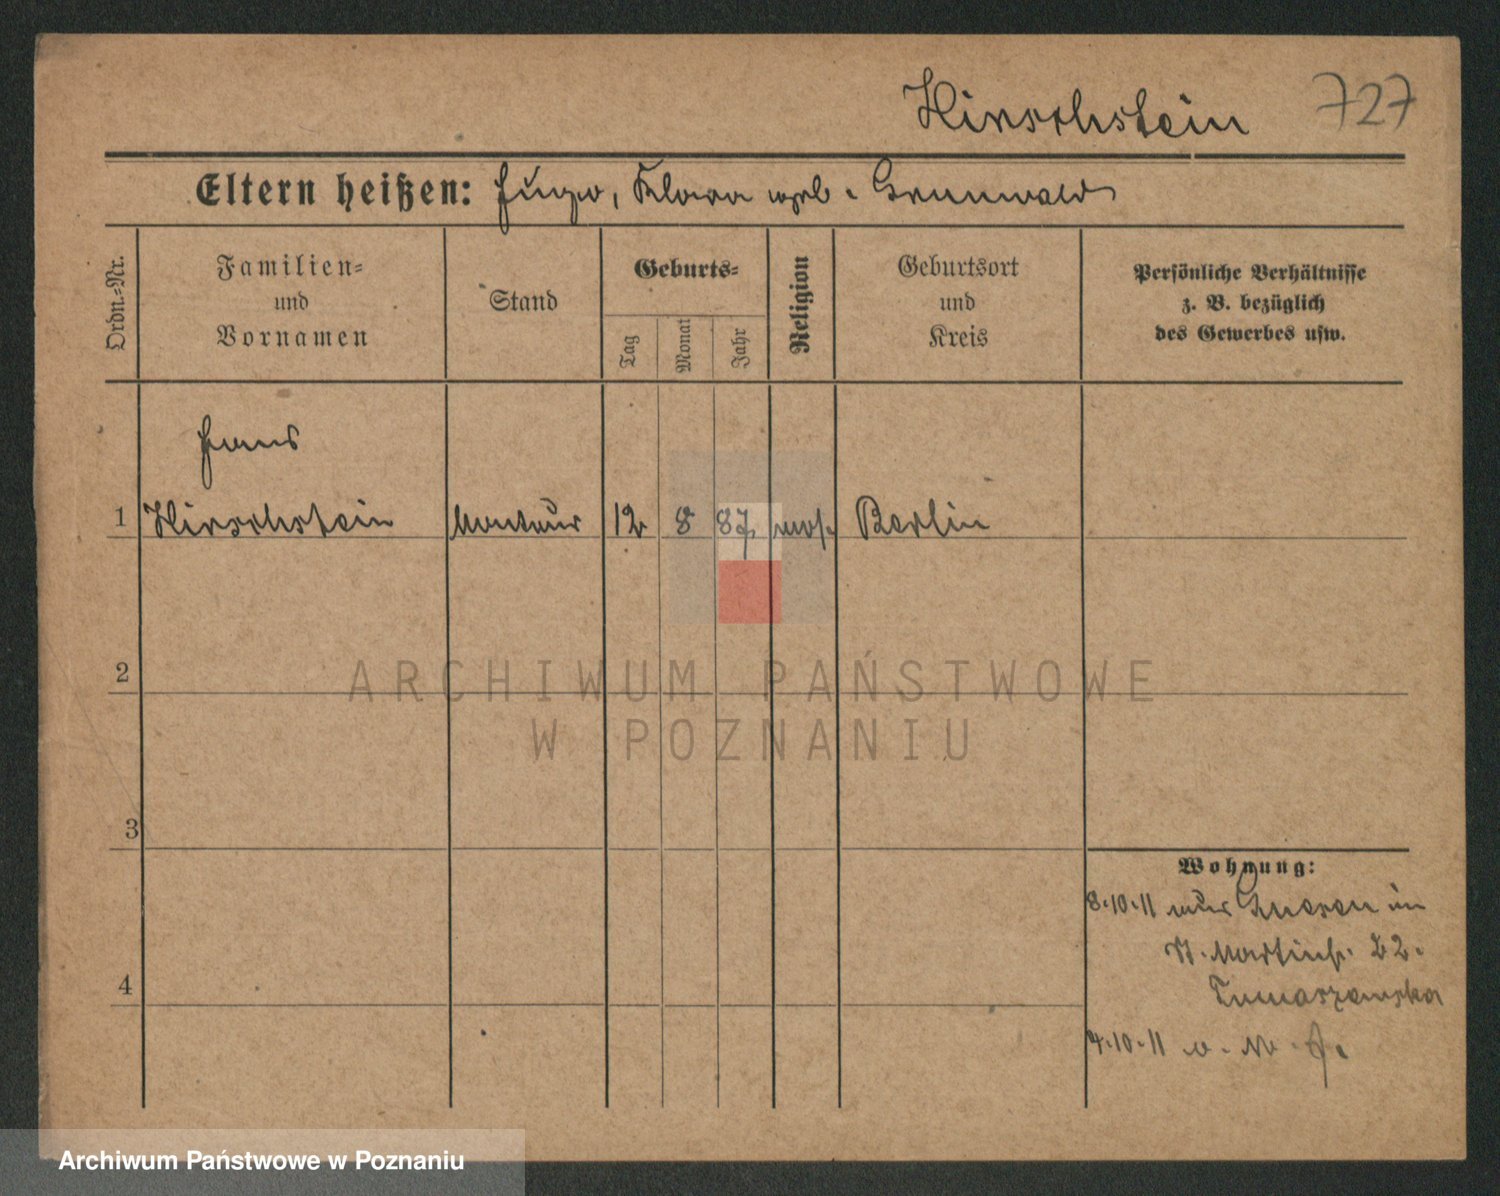 Hirschstein 727
Eltern heißen: Hugo, Klara geb. Grunwald
Ordn.-Nr.
Familien-
und
Vornamen
Stand
Geburts-
Tag
Monat
Jahr
Religion
Geburtsort
und
Kreis
Persönliche Verhältnisse
z. B. bezüglich
des Gewerbes usw.
Hans
1 Hirschstein Monteur 12 8 87 mos. Berlin
2
3
4
Wohnung:
8.10.11 aus Gnesen in
St. Martinstr. 22.
Tomaszewska
4.10.11
ARCHIWUM PAŃSTWOWE
W POZNANIU
Archiwum Państwowe w Poznaniu